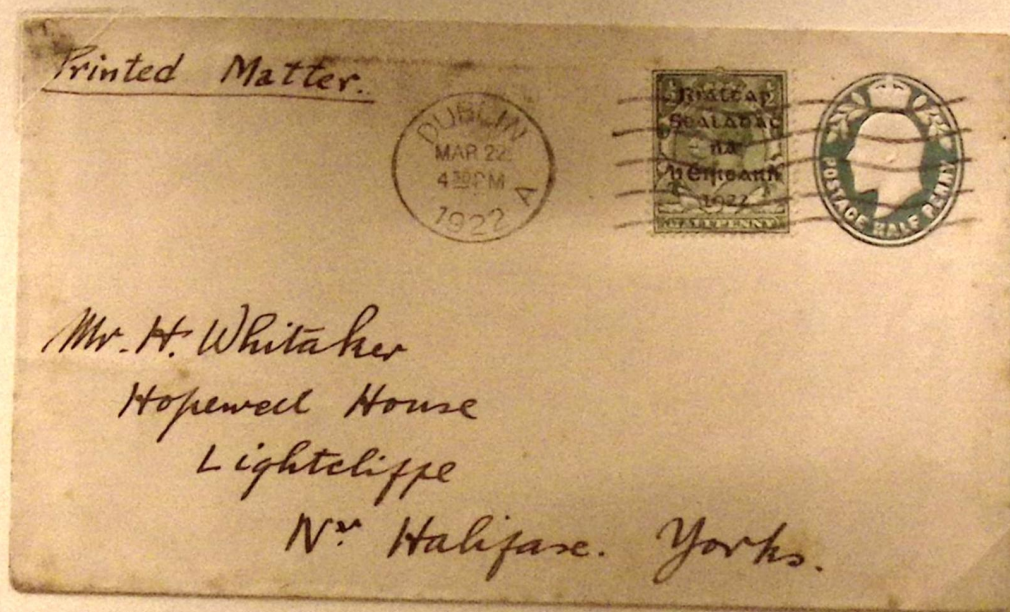 Printed Matter.
DUBLIN
MAR 22
4 30 PM
A
1922
Rialtar
Sealadaċ
na
hÉireann
1922
HALF PENNY
POSTAGE HALF PENNY
Mr. H. Whitaker
Hopewell House
Lightcliffe
Nr. Halifax. Yorks.